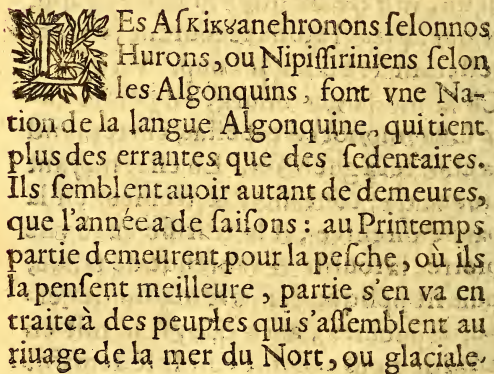 LEs Aſĸiĸȣanehronons ſelonnos
Hurons, ou Nipiſſiriniens ſelon
les Algonquins, ſont vne Na-
tion de la langue Algonquine, qui tient
plus des errantes que des ſedentaires.
Ils ſemblent auoir autant de demeures,
que l'année a de ſaiſons : au Printemps
partie demeurent pour la peſche, où ils
la penſent meilleure, partie s'en va en
traite à des peuples qui s'aſſemblent au
riuage de la mer du Nort, ou glaciale.